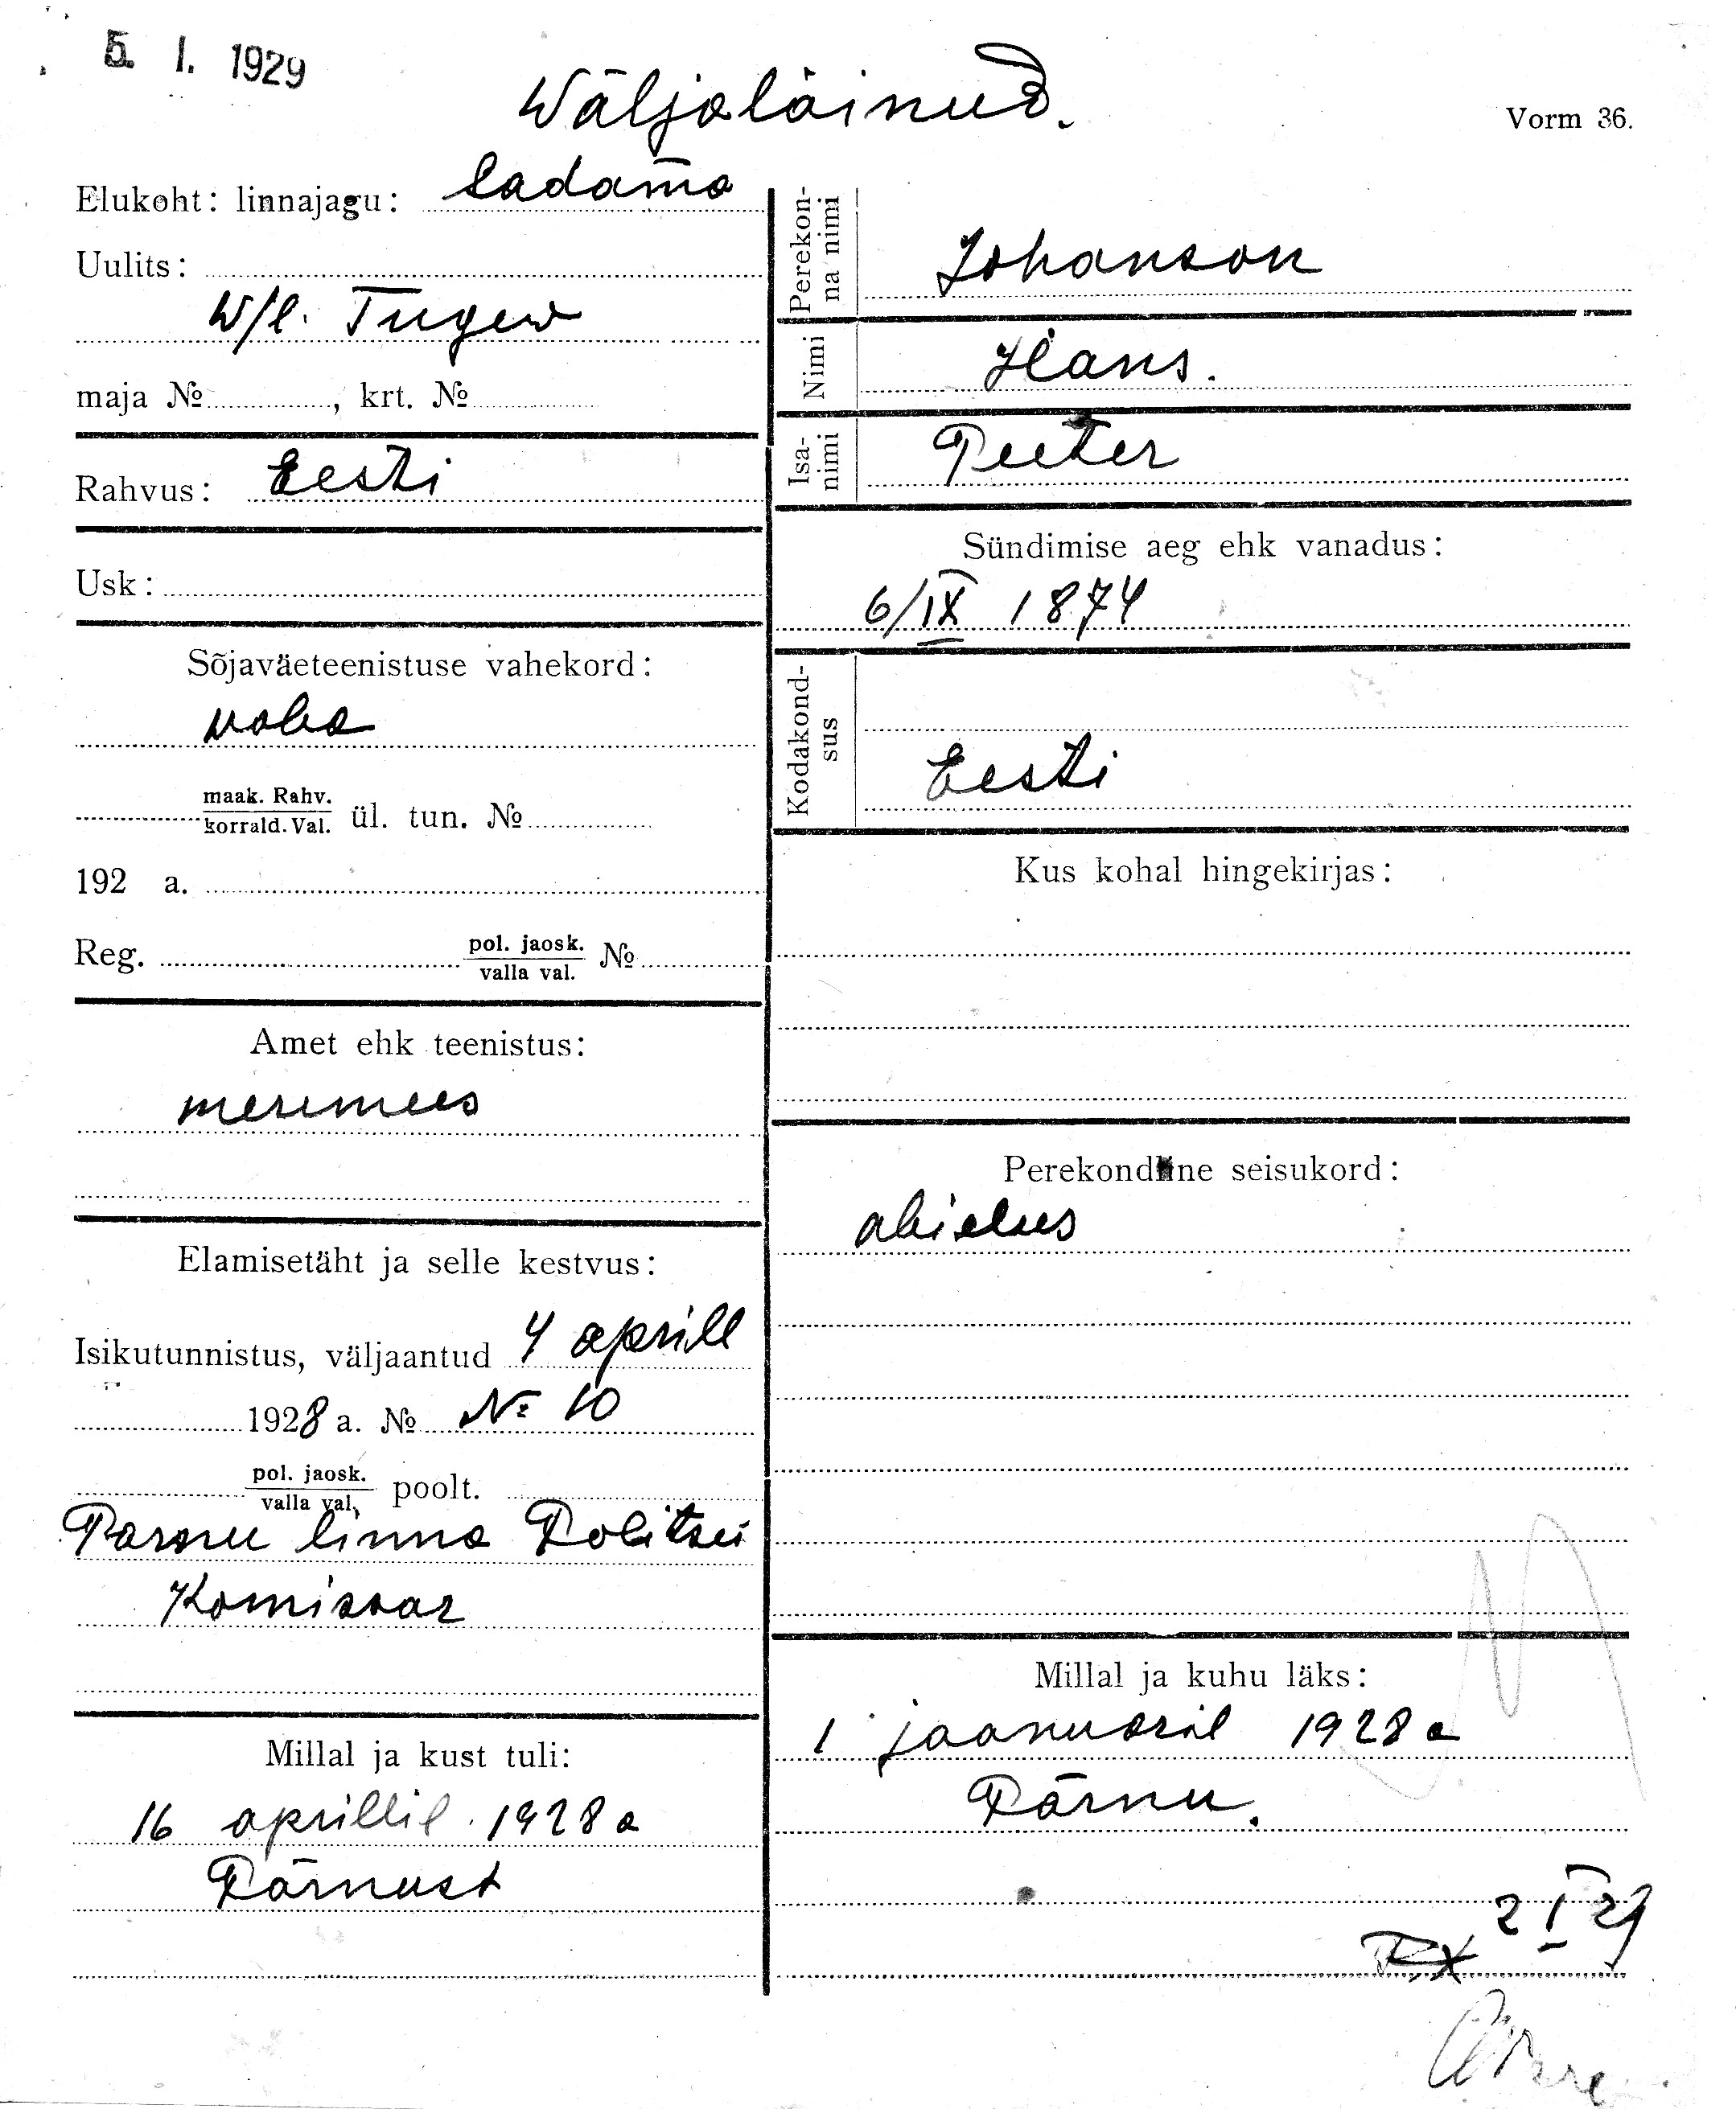 5. I. 1929
Wäljaläinud.
Vorm 36.
Elukoht: linnajagu: Sadama
Uulits:
W/l. Tugew
maja №, krt. №
Rahvus: Eesti
Usk:
Sõjaväeteenistuse vahekord:
waba
maak. Rahv.
korrald. Val. ül. tun. №
192 a.
Reg. pol. jaosk.
valla val. №
Amet ehk teenistus:
meremees
Elamisetäht ja selle kestvus:
Isikutunnistus, väljaantud 4 aprill
1928 a. № № 10
pol. jaosk.
valla val. poolt.
Parnu linna Politsei
Komissar
Millal ja kust tuli:
16 aprillil 1928 a
Pärnust
Perekonna nimi
Johanson
Nimi
Hans.
Isanimi
Peeter
Sündimise aeg ehk vanadus:
6/IX 1874
Kodakondsus
Eesti
Kus kohal hingekirjas:
Perekondline seisukord:
abielus
Millal ja kuhu läks:
1 jaanuaril 1928 a
Pärnu.
2 I 29